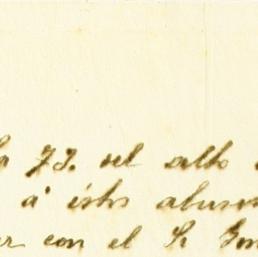 la 73. del alto
á éstos abusos
ar con el Sr Gon